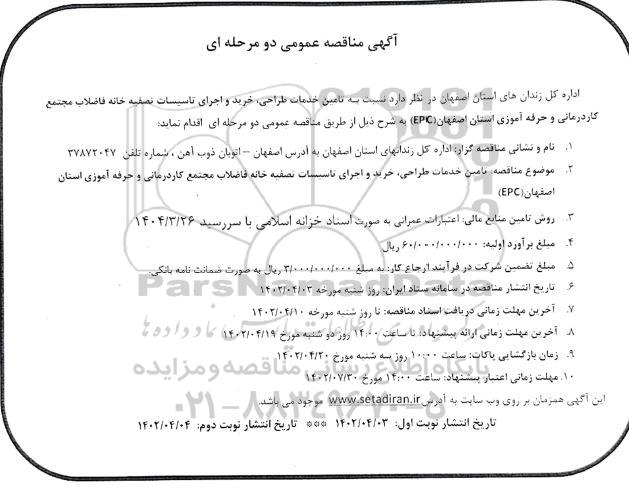 آگهی مناقصه عمومی دو مرحله ای
اداره کل زندان های استان اصفهان در نظر دارد نسبت به تامین خدمات طراحی، خرید و اجرای تاسیسات تصفیه خانه فاضلاب مجتمع
کاردرمانی و حرفه آموزی استان اصفهان(EPC) به شرح ذیل از طریق مناقصه عمومی دو مرحله ای اقدام نماید:
۱. نام و نشانی مناقصه گزار: اداره کل زندانهای استان اصفهان به آدرس اصفهان – اتوبان ذوب آهن ، شماره تلفن ۳۷۸۷۲۰۴۷
۲. موضوع مناقصه: تامین خدمات طراحی، خرید و اجرای تاسیسات تصفیه خانه فاضلاب مجتمع کاردرمانی و حرفه آموزی استان
اصفهان(EPC)
۳. روش تامین منابع مالی: اعتبارات عمرانی به صورت اسناد خزانه اسلامی با سررسید ۱۴۰۴/۳/۲۶
۴. مبلغ برآورد اولیه: ۶۰/۰۰۰/۰۰۰/۰۰۰ ریال
۵. مبلغ تضمین شرکت در فرآیند ارجاع کار: به مبلغ ۳/۰۰۰/۰۰۰/۰۰۰ ریال به صورت ضمانت نامه بانکی.
۶. تاریخ انتشار مناقصه در سامانه ستاد ایران: روز شنبه مورخه ۱۴۰۲/۰۴/۰۳
۷. آخرین مهلت زمانی دریافت اسناد مناقصه: تا روز شنبه مورخه ۱۴۰۲/۰۴/۱۰
۸. آخرین مهلت زمانی ارائه پیشنهاد: تا ساعت ۱۴:۰۰ روز دو شنبه مورخ ۱۴۰۲/۰۴/۱۹
۹. زمان بازگشایی پاکات: ساعت ۱۰:۰۰ روز سه شنبه مورخ ۱۴۰۲/۰۴/۲۰
۱۰. مهلت زمانی اعتبار پیشنهاد: ساعت ۱۴:۰۰ مورخ ۱۴۰۲/۰۷/۳۰
این آگهی همزمان بر روی وب سایت به آدرس www.setadiran.ir موجود می باشد.
تاریخ انتشار نوبت اول: ۱۴۰۲/۰۴/۰۳ *** تاریخ انتشار نوبت دوم: ۱۴۰۲/۰۴/۰۴
ParsNamadData
پایگاه اطلاع رسانی مناقصه و مزایده
۰۲۱-۸۸۳۴۹۶۷۰-۵